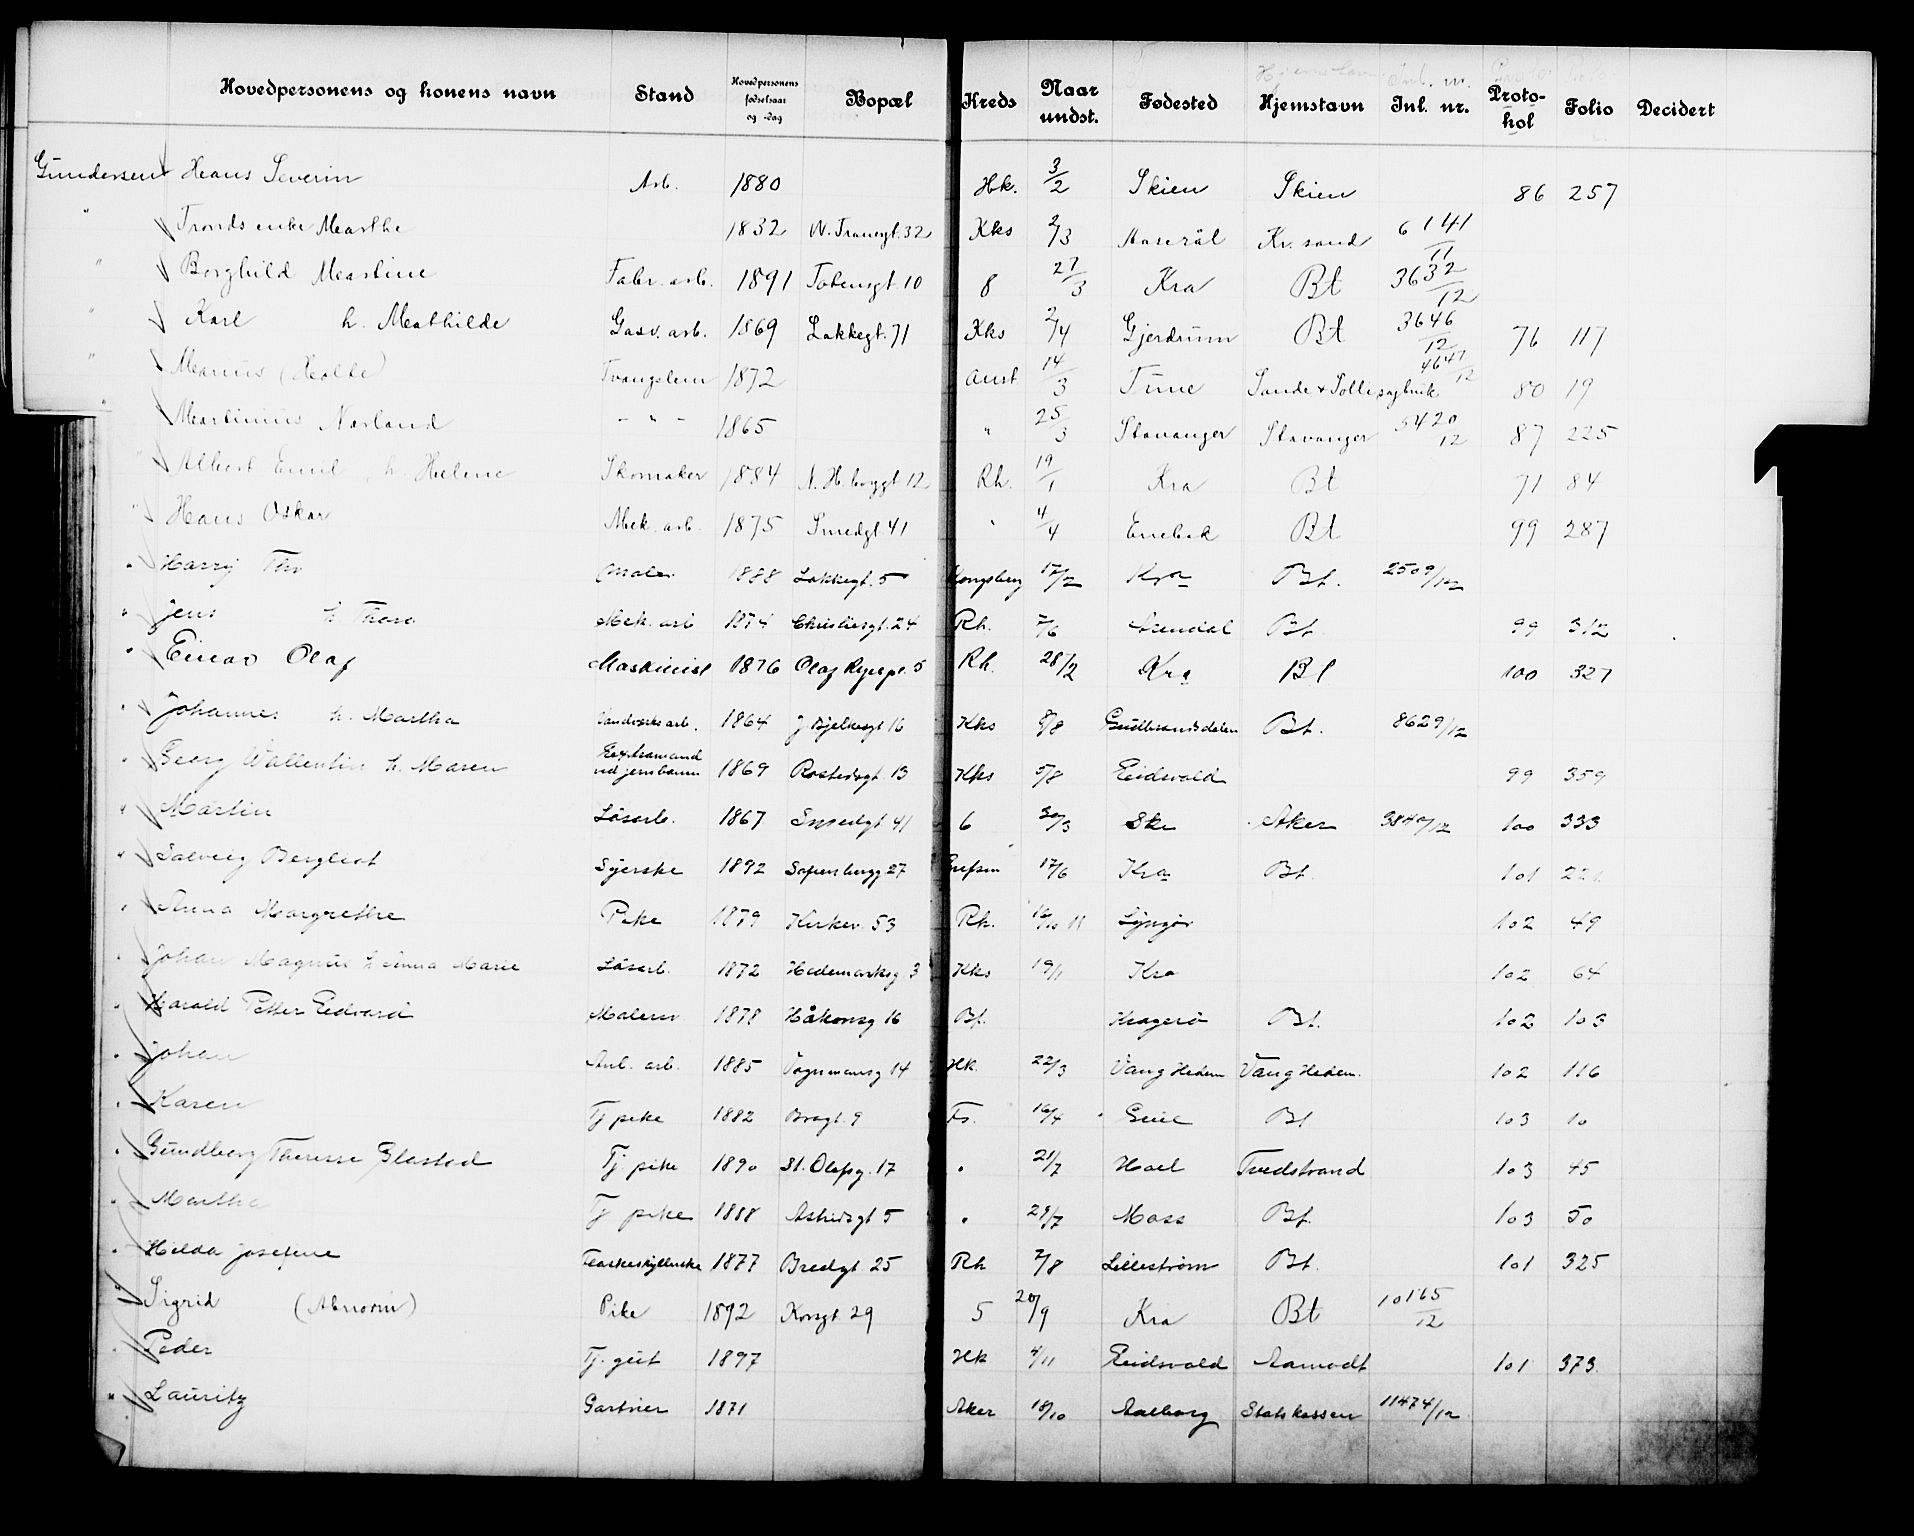 Hovedpersonens og konens navn Stand Hovedpersonens fødselsaar og -dag Bopæl Kreds Naar undst. Fødested Hjemstavn Inl. nr. Protokol Folio Decidert
Gundersen Hans Severin Arb. 1880 Hk. 3/2 Skien Skien 86 257
" Tronds enke Marthe 1832 Kks 2/3 Aaseral Kr. sand 6141/11
" Borghild Martine Fabr. arb. 1891 Totensgt 10 8 27/3 Kra Bt 3632/12
Karl h. Mathilde Gasv. arb. 1869 Lakkegt. 71 Kks 2/4 Gjerdrum Bt 3646/12 76 117
" Marius (Halde) Tvangslem 1872 Anst 14/3 Tune Sande & Sollie 4647/12 80 19
" Martinius Narland - " - 1865 " 25/3 Stavanger Stavanger 5420/12 87 225
" Albert Emil, h. Helene Skomaker 1884 Rh. 19/1 Kra Bt 71 84
" Hans Oskar Mek. arb. 1875 Smedgt. 41 " 4/4 Enebak Bt 99 287
" Harry Thv Maler 1888 Lakkegt. 5 Kongsberg 17/2 Kra Bt. 2509/12
" Jens h Thora Mek. arb 1874 Christiesgt. 24 Rh. 7/6 Arendal Bt. 99 312
" Einar Olaf Maskinist 1876 Olaf Ryespl. 5 Rh. 28/2 Kra Bt 100 327
" Johannes h. Martha Vandværksarb. 1864 J Bjelkesgt 16 Kks 8/8 Gudbrandsdalen Bt. 8629/12
" Georg Wallentin h. Maren Extramand ved jernbanen 1869 Rostedsgt. 13 Kks 5/8 Eidsvold 99 359
" Martin Løsarb. 1867 Smedgt 41 6 30/3 Ski Aker 3840/12 100 333
" Solveig Bergliot Syerske 1892 Sofienbergg 27 Grefsen 17/6 Kra Bt. 101
" Anna Margrethe Pike 1879 Kirkev. 53 Rh. 16/10 11 Lyngør 102 49
" Johan Magnus h Anna Marie Løsarb. 1872 Hedemarksg 3 Kks 19/1 Kra 102 64
" Harald Petter Edvard Malersv 1878 Håkonsg 16 Bf. Kragerø Bt. 102 103
" Johan Anl. arb. 1885 Vognmansg 14 Hk. 22/3 Vang Hedem Vang Hedem. 102 116
" Karen Tj pike 1882 Bragt. 9 Fs. 16/4 Grue Bt 103 10
" Gundborg Therese Glastad Tj. pike 1890 St. Olafsg. 17 " 21/7 Holt Tvedstrand 103 45
" Martha Tj pike 1888 Astridsgt 5 " 29/7 Moss Bt. 103 50
" Hilda Josefine Flaskeskyllerske 1877 Bredgt 25 Rh 7/8 Lillestrøm Bt. 101 325
" Sigrid (Abnorm) Pike 1892 Korsgt 29 5 20/9 Kra Bt 10165/12
" Peder Tj. gut 1897 Hk 4/11 Eidsvold Aamodt 101 373
" Lauritz Gartner 1871 Aker 18/10 Aalborg Statskassen 11474/12